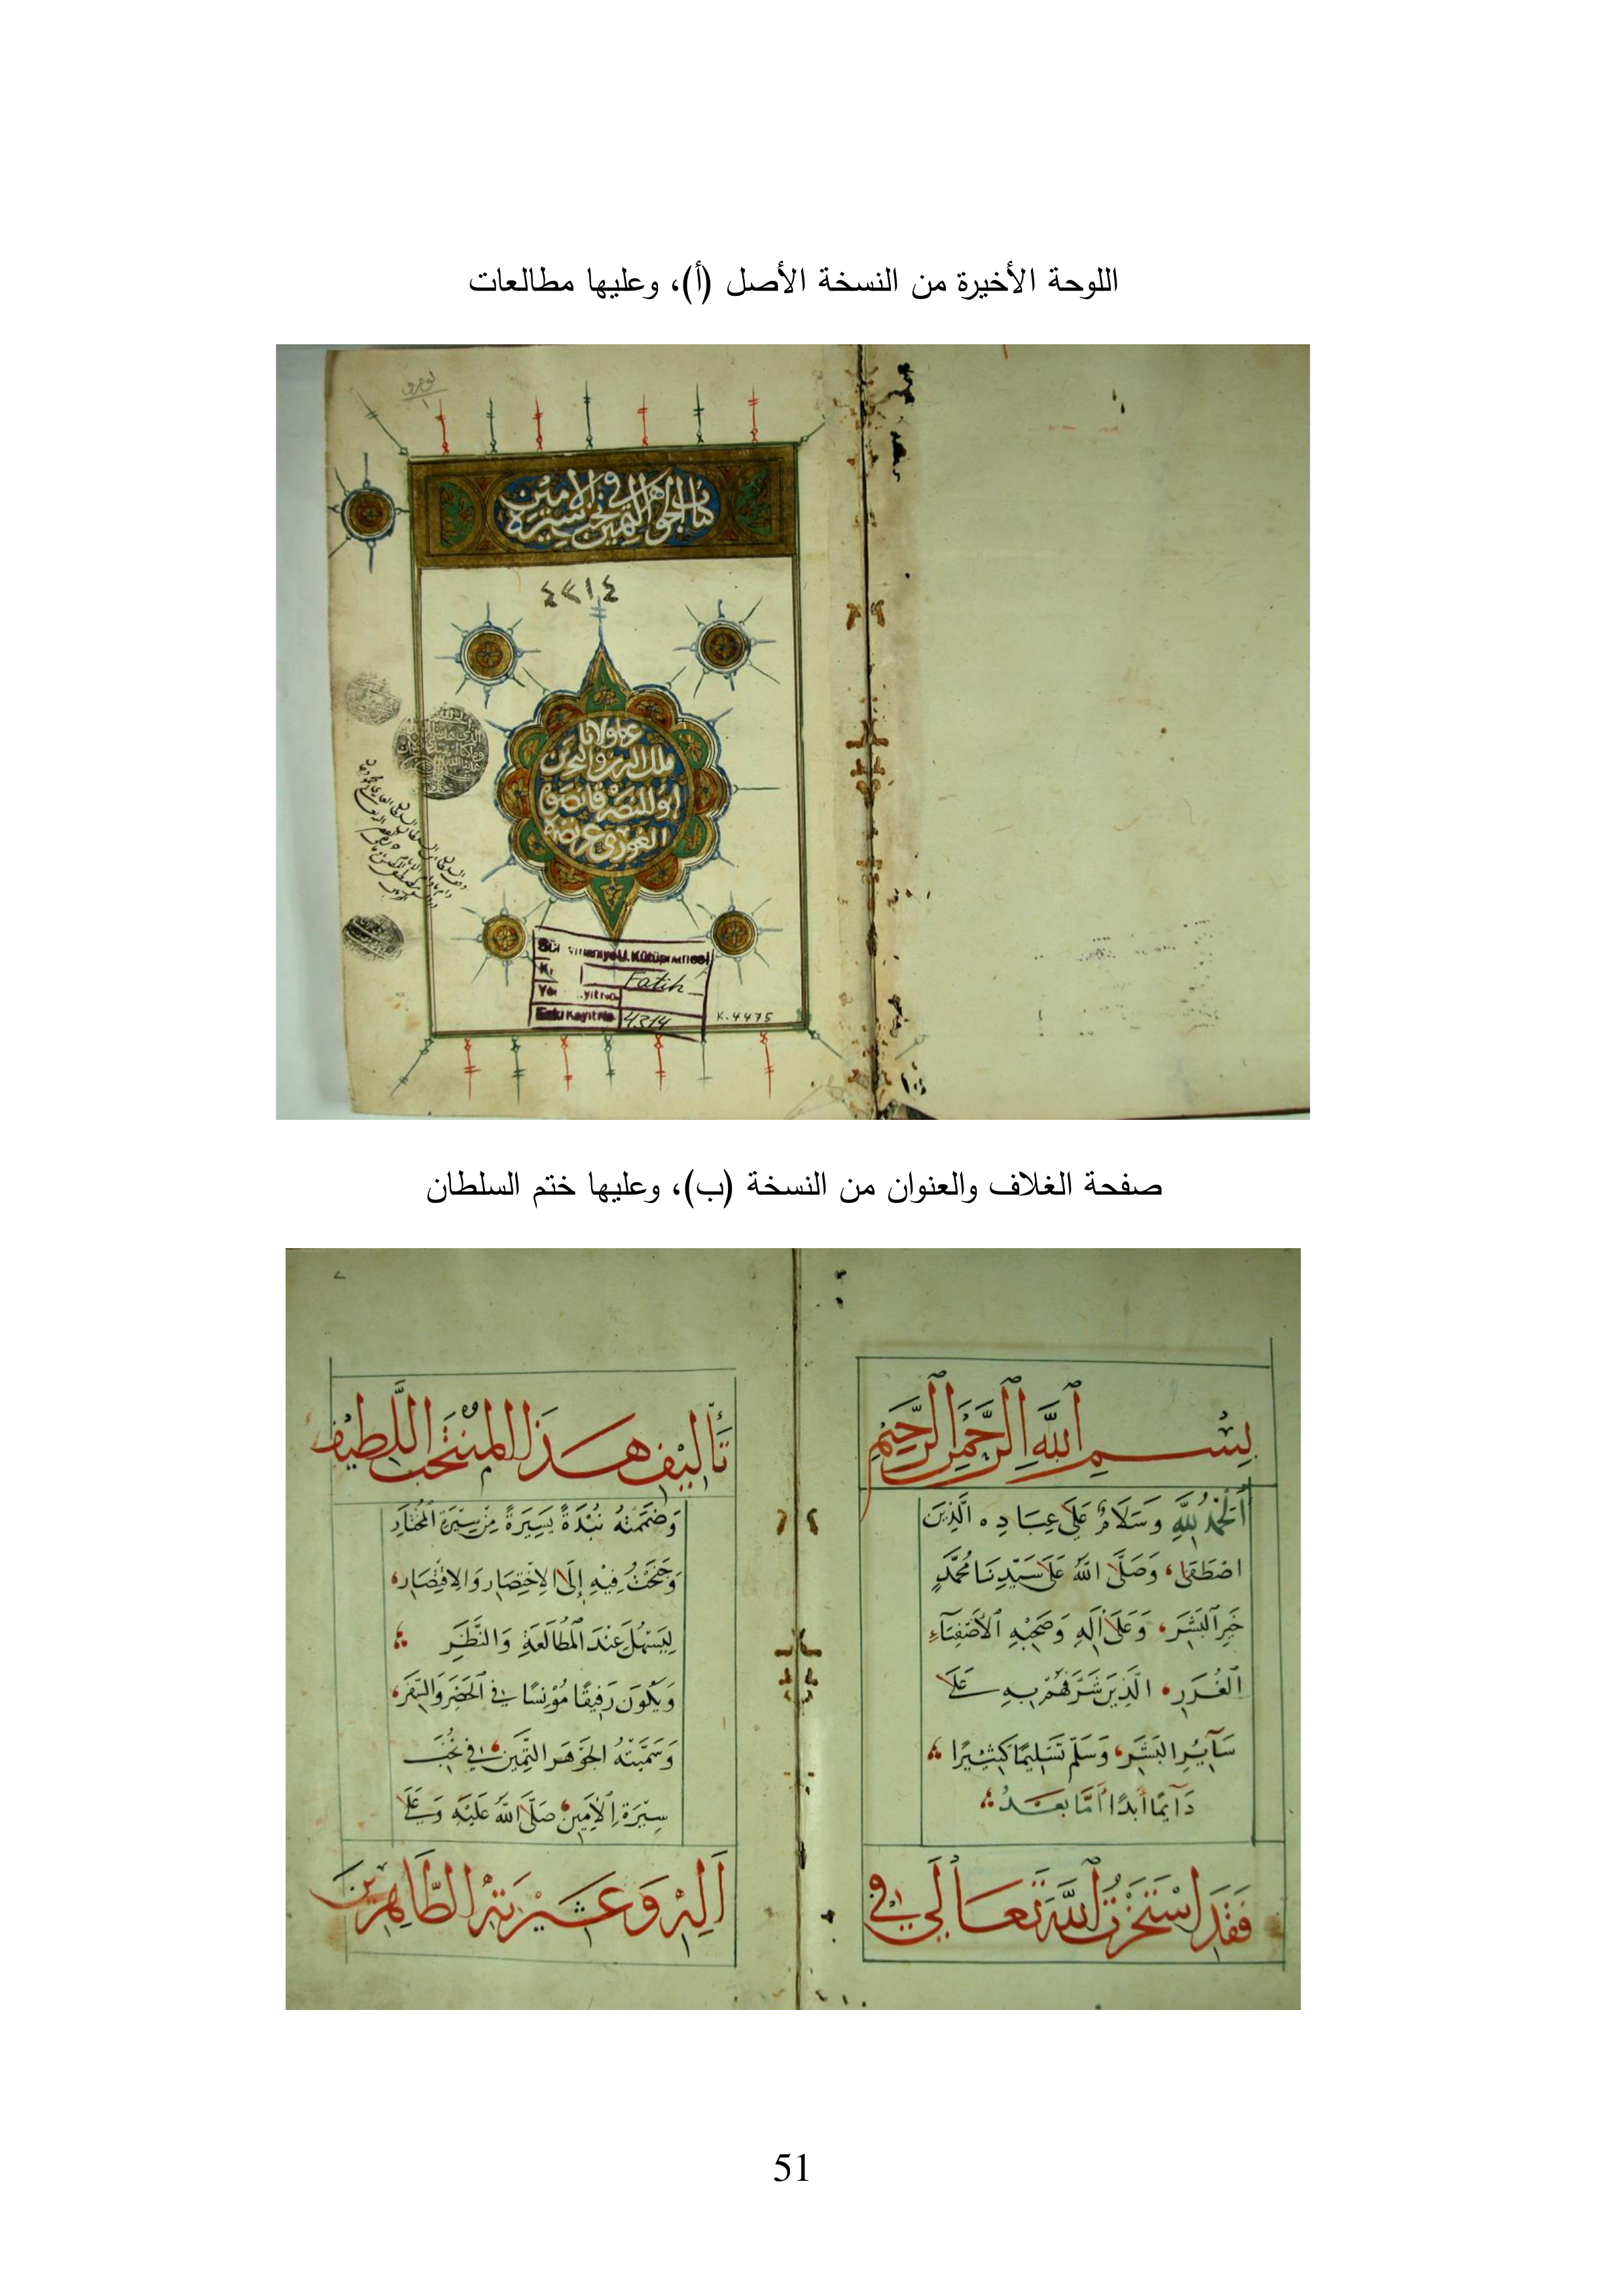 اللوحة الأخيرة من النسخة الأصل (أ)، وعليها مطالعات
كتاب الجوهر الثمين في نخب سيرة الأمين
٤٣١٤
مولانا
ملك البرين والبحرين
ابو النصر قانصوه
الغوري عز نصره
Kütüphanesi
Fatih
Eski Kayıt No 4314
K. 4475
صفحة الغلاف والعنوان من النسخة (ب)، وعليها ختم السلطان
بِسْمِ اللَّهِ الرَّحْمٰنِ الرَّحِيمِ
اَلْحَمْدُ لِلَّهِ وَسَلَامٌ عَلَى عِبَادِهِ الَّذِينَ
اصْطَفَى، وَصَلَّى اللَّهُ عَلَى سَيِّدِنَا مُحَمَّدٍ
خَيْرِ الْبَشَرِ، وَعَلَى آلِهِ وَصَحْبِهِ الْأَصْفِيَاءِ
الْغُرَرِ، الَّذِينَ شَرَّفَهُمْ بِهِ عَلَى
سَآيِرِ الْبَشَرِ، وَسَلَّمَ تَسْلِيمًا كَثِيرًا
دَايِمًا أَبَدًا أَمَّا بَعْدُ
فَقَدِ اسْتَخَرْتُ اللَّهَ تَعَالَى فِي
تَأْلِيْفِ هَذَا الْمُنْتَخَبِ اللَّطِيْفِ
وَضَمَّنْتُهُ نُبْذَةً يَسِيرَةً مِنْ سِيْرَةِ الْمُخْتَارِ
وَجَنَحْتُ فِيْهِ إِلَى الْاِخْتِصَارِ وَالْاِقْتِصَارِ،
لِيَسْهُلَ عِنْدَ الْمُطَالَعَةِ وَالنَّظَرِ
وَيَكُونَ رَفِيقًا مُؤْنِسًا فِي الْحَضَرِ وَالسَّفَرِ،
وَسَمَّيْتُهُ الْجَوْهَرَ الثَّمِينَ، فِي نُخَبِ
سِيْرَةِ الْأَمِينِ، صَلَّى اللَّهُ عَلَيْهِ وَعَلَى
آلِهِ وَعِتْرَتِهِ الطَّاهِرِيْنَ
51